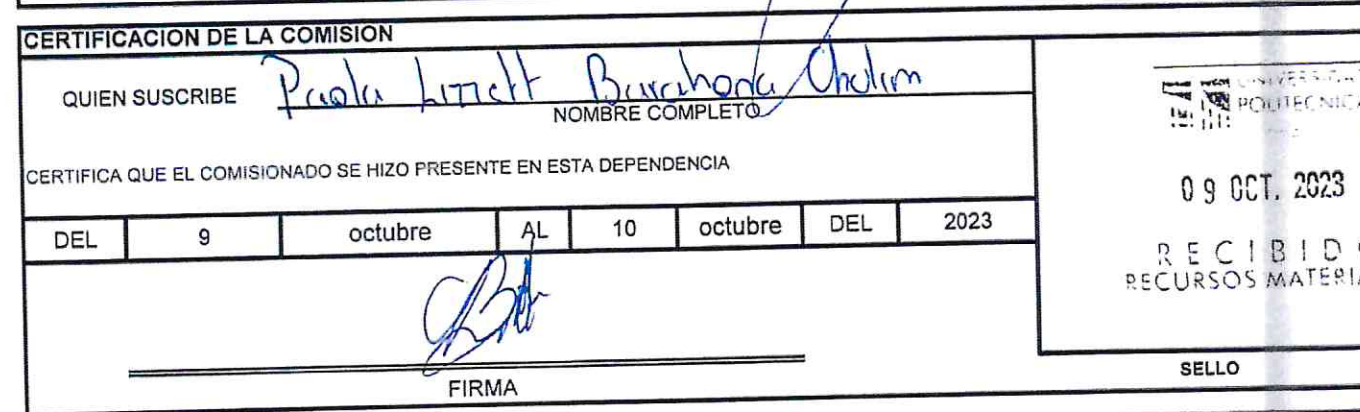 CERTIFICACION DE LA COMISION
QUIEN SUSCRIBE Paola Lizzett Barahona
NOMBRE COMPLETO
CERTIFICA QUE EL COMISIONADO SE HIZO PRESENTE EN ESTA DEPENDENCIA
DEL 9 octubre AL 10 octubre DEL 2023
FIRMA
UNIVERSIDAD
POLITECNICA
09 OCT. 2023
RECIBID
RECURSOS MATERIA
SELLO